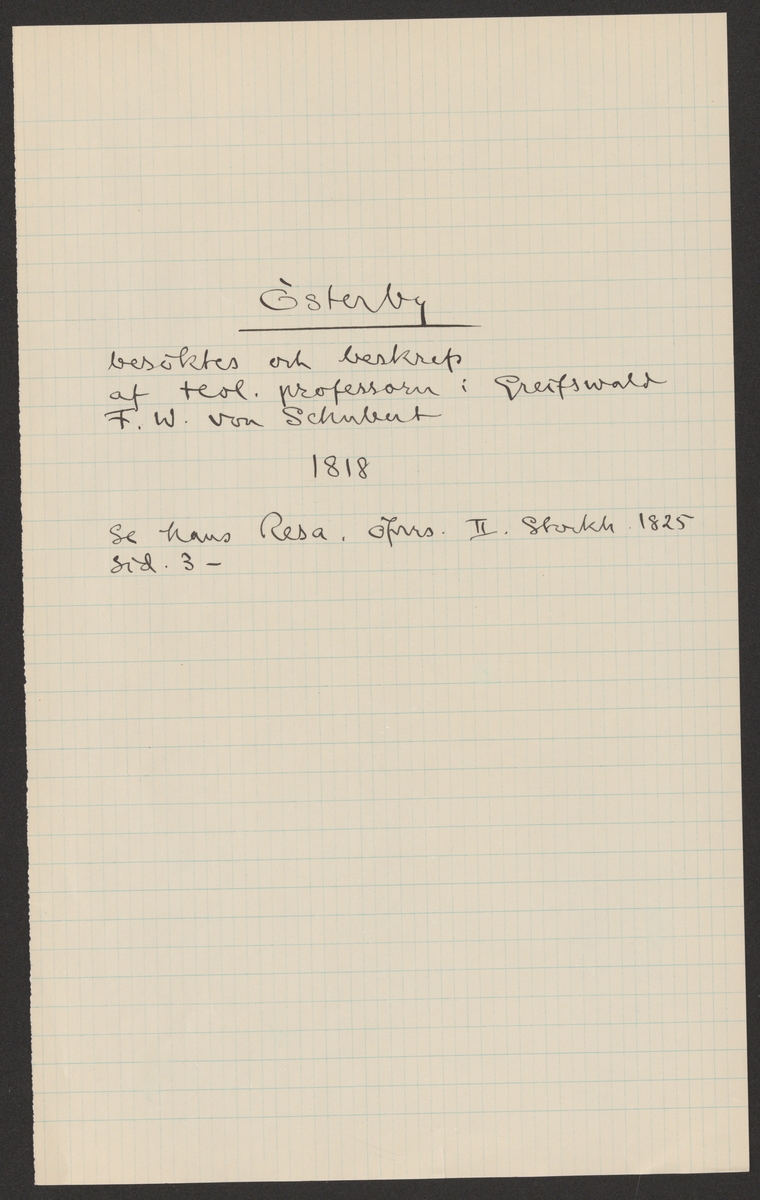 Österby
besöktes och beskrefs
af teol. professorn i Greifswald
F. W. von Schubert
1818
Se hans Resa. öfvrs. II. Stockh. 1825
Sid. 3 –